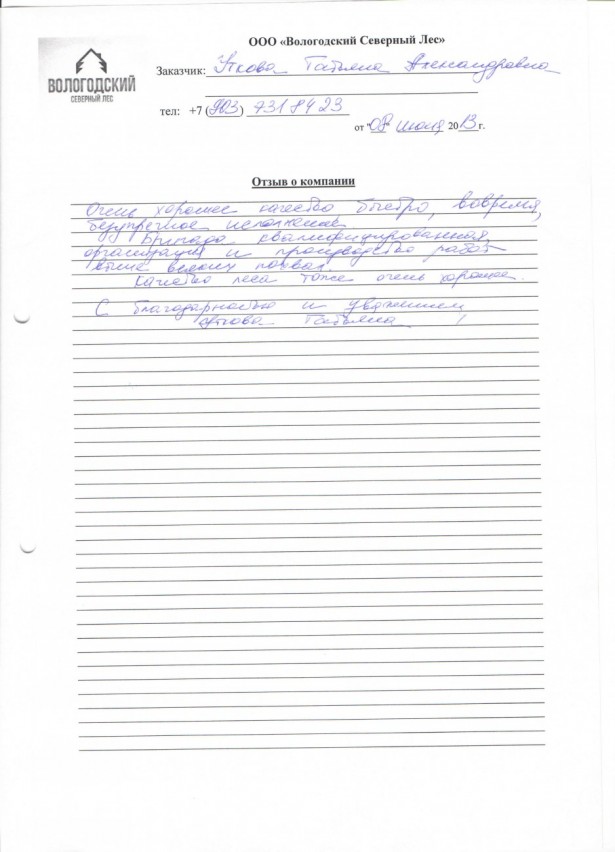 ООО «Вологодский Северный Лес»
ВОЛОГОДСКИЙ
СЕВЕРНЫЙ ЛЕС
Заказчик: Уткова Татьяна Александровна
тел: +7 (903) 7318423
от "08" июля 2013 г.
Отзыв о компании
Очень хорошее качество быстро, вовремя,
безупречное исполнение
Бригада квалифицированная,
организация и производство работ
выше всяких похвал.
Качество леса тоже очень хорошее.
С благодарностью и уважением
Уткова Татьяна !